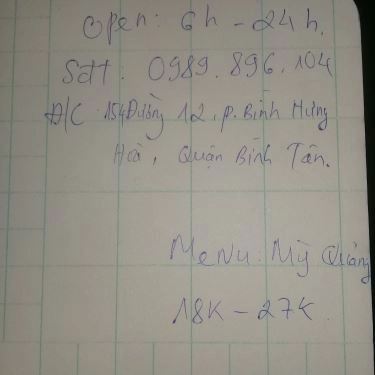 Open: 6h - 24h.
Sdt: 0989.896.104
Đ/C: 154 Đường 12, p. Bình Hưng
Hoà, Quận Bình Tân.
Menu: Mỳ Quảng
18K - 27K